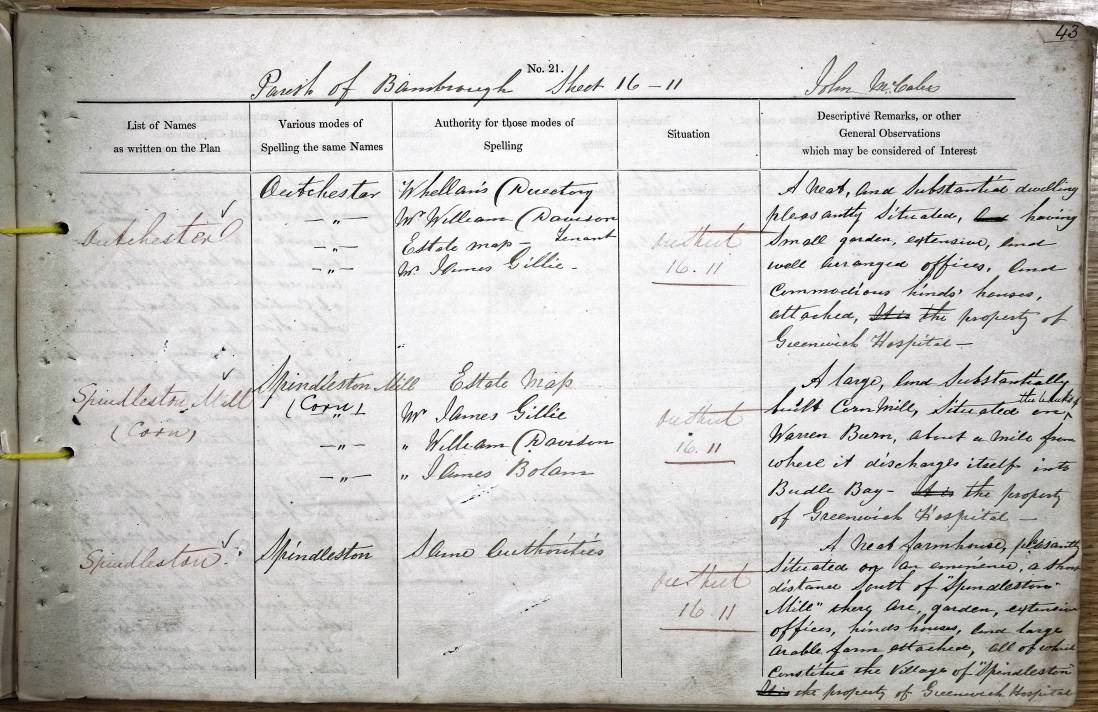 43
No. 21.
Parish of Bambrough Sheet 16-11 John McCabe
List of Names
as written on the Plan
Various modes of
Spelling the same Names
Authority for those modes of
Spelling
Situation
Descriptive Remarks, or other
General Observations
which may be considered of Interest
Outchester
Outchester
— „ —
— „ —
— „ —
Whellan's Directory
Mr William Davison
Tenant
Estate map —
Mr James Gillie —
On Sheet
16.11
A neat, and Substantial dwelling
pleasantly Situated, and having
Small garden, extensive, and
well arranged offices, and
Commodious hinds' houses,
attached, It is the property of
Greenwich Hospital —
Spindleston Mill
(Corn)
Spindleston Mill
(Corn)
— „ —
— „ —
— „ —
Estate Map
Mr James Gillie
„ William Davison
„ James Bolam
On Sheet
16.11
A large, and Substantially
built Corn Mill, Situated on the banks of
Warren Burn, about a mile from
where it discharges itself into
Budle Bay — It is the property
of Greenwich Hospital —
Spindleston
Spindleston
Same Authorities
On Sheet
16.11
A neat farmhouse, pleasantly
Situated on an eminence, a short
distance South of "Spindleston
Mill" there are, garden, extensive
offices, hinds houses, and large
arable farm attached, all of which
Constitute the Village of "Spindleston"
It is the property of Greenwich Hospital